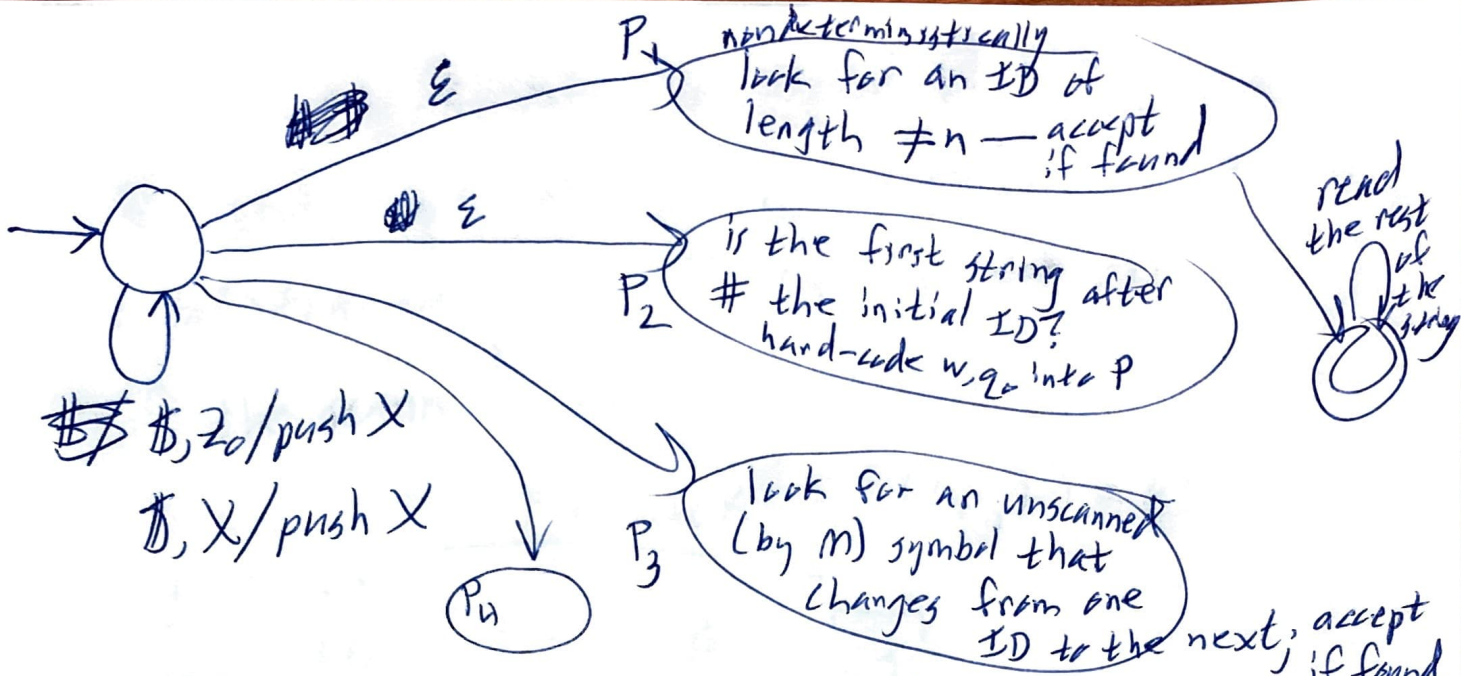 ε
P₁
nondeterministically
look for an ID of
length ≠ n — accept
if found
ε
P₂
is the first string after
# the initial ID?
hard-code w, q₀ into P
read
the rest
of
the
string
$, Z₀/push X
$, X/push X
P₃
look for an unscanned
(by M) symbol that
changes from one
ID to the next; accept
if found
P₄